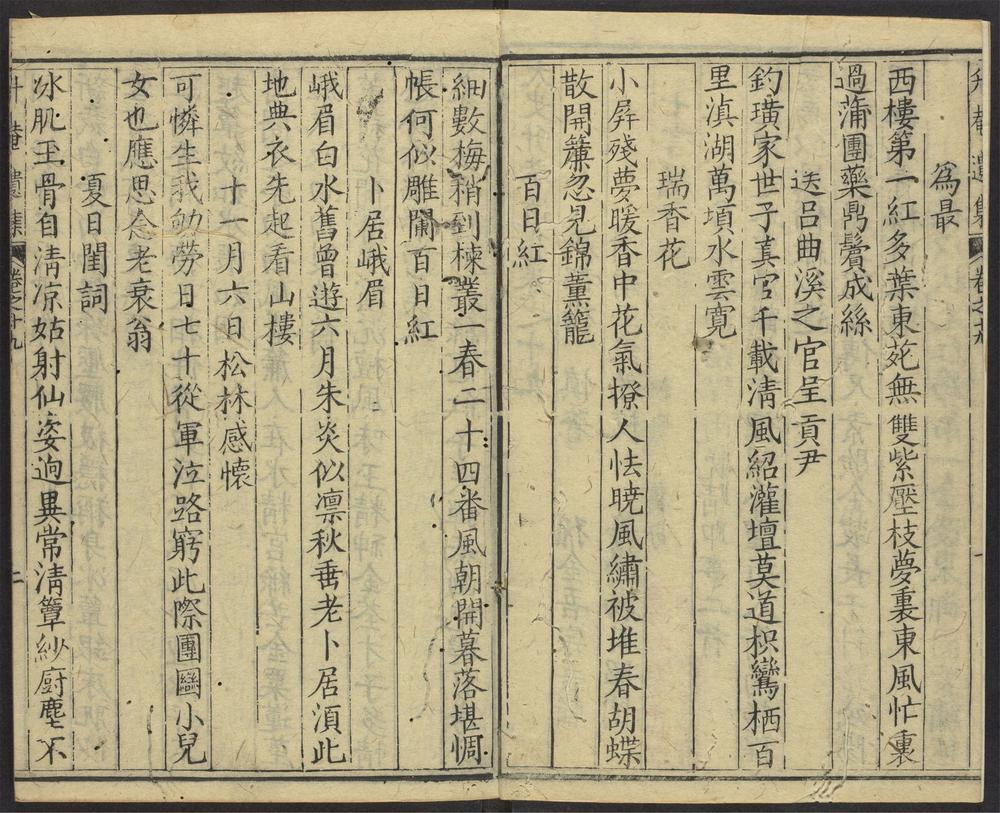 升菴遺集 卷之十九 一
為最
西樓第一紅多葉東苑無雙紫壓枝夢裏東風忙裏
過蒲團藥鼎鬢成絲
送呂曲溪之官呈貢尹
釣璜家世子真官千載清風紹灌壇莫道枳鸞栖百
里滇湖萬頃水雲寬
瑞香花
小屏殘夢暖香中花氣撩人怯曉風繡被堆春胡蝶
散開簾忽見錦薰籠
百日紅
細數梅稍到楝叢一春二十四番風朝開暮落堪惆
帳何似雕闌百日紅
卜居峨眉
峨眉白水舊曾遊六月朱炎似凛秋垂老卜居湏此
地典衣先起看山樓
十一月六日松林感懷
可憐生我劬勞日七十從軍泣路窮此際團圝小兒
女也應思念老衰翁
夏日閨詞
氷肌玉骨自清凉姑射仙姿逈異常清簟紗厨塵不
升菴遺集 卷之十九 二